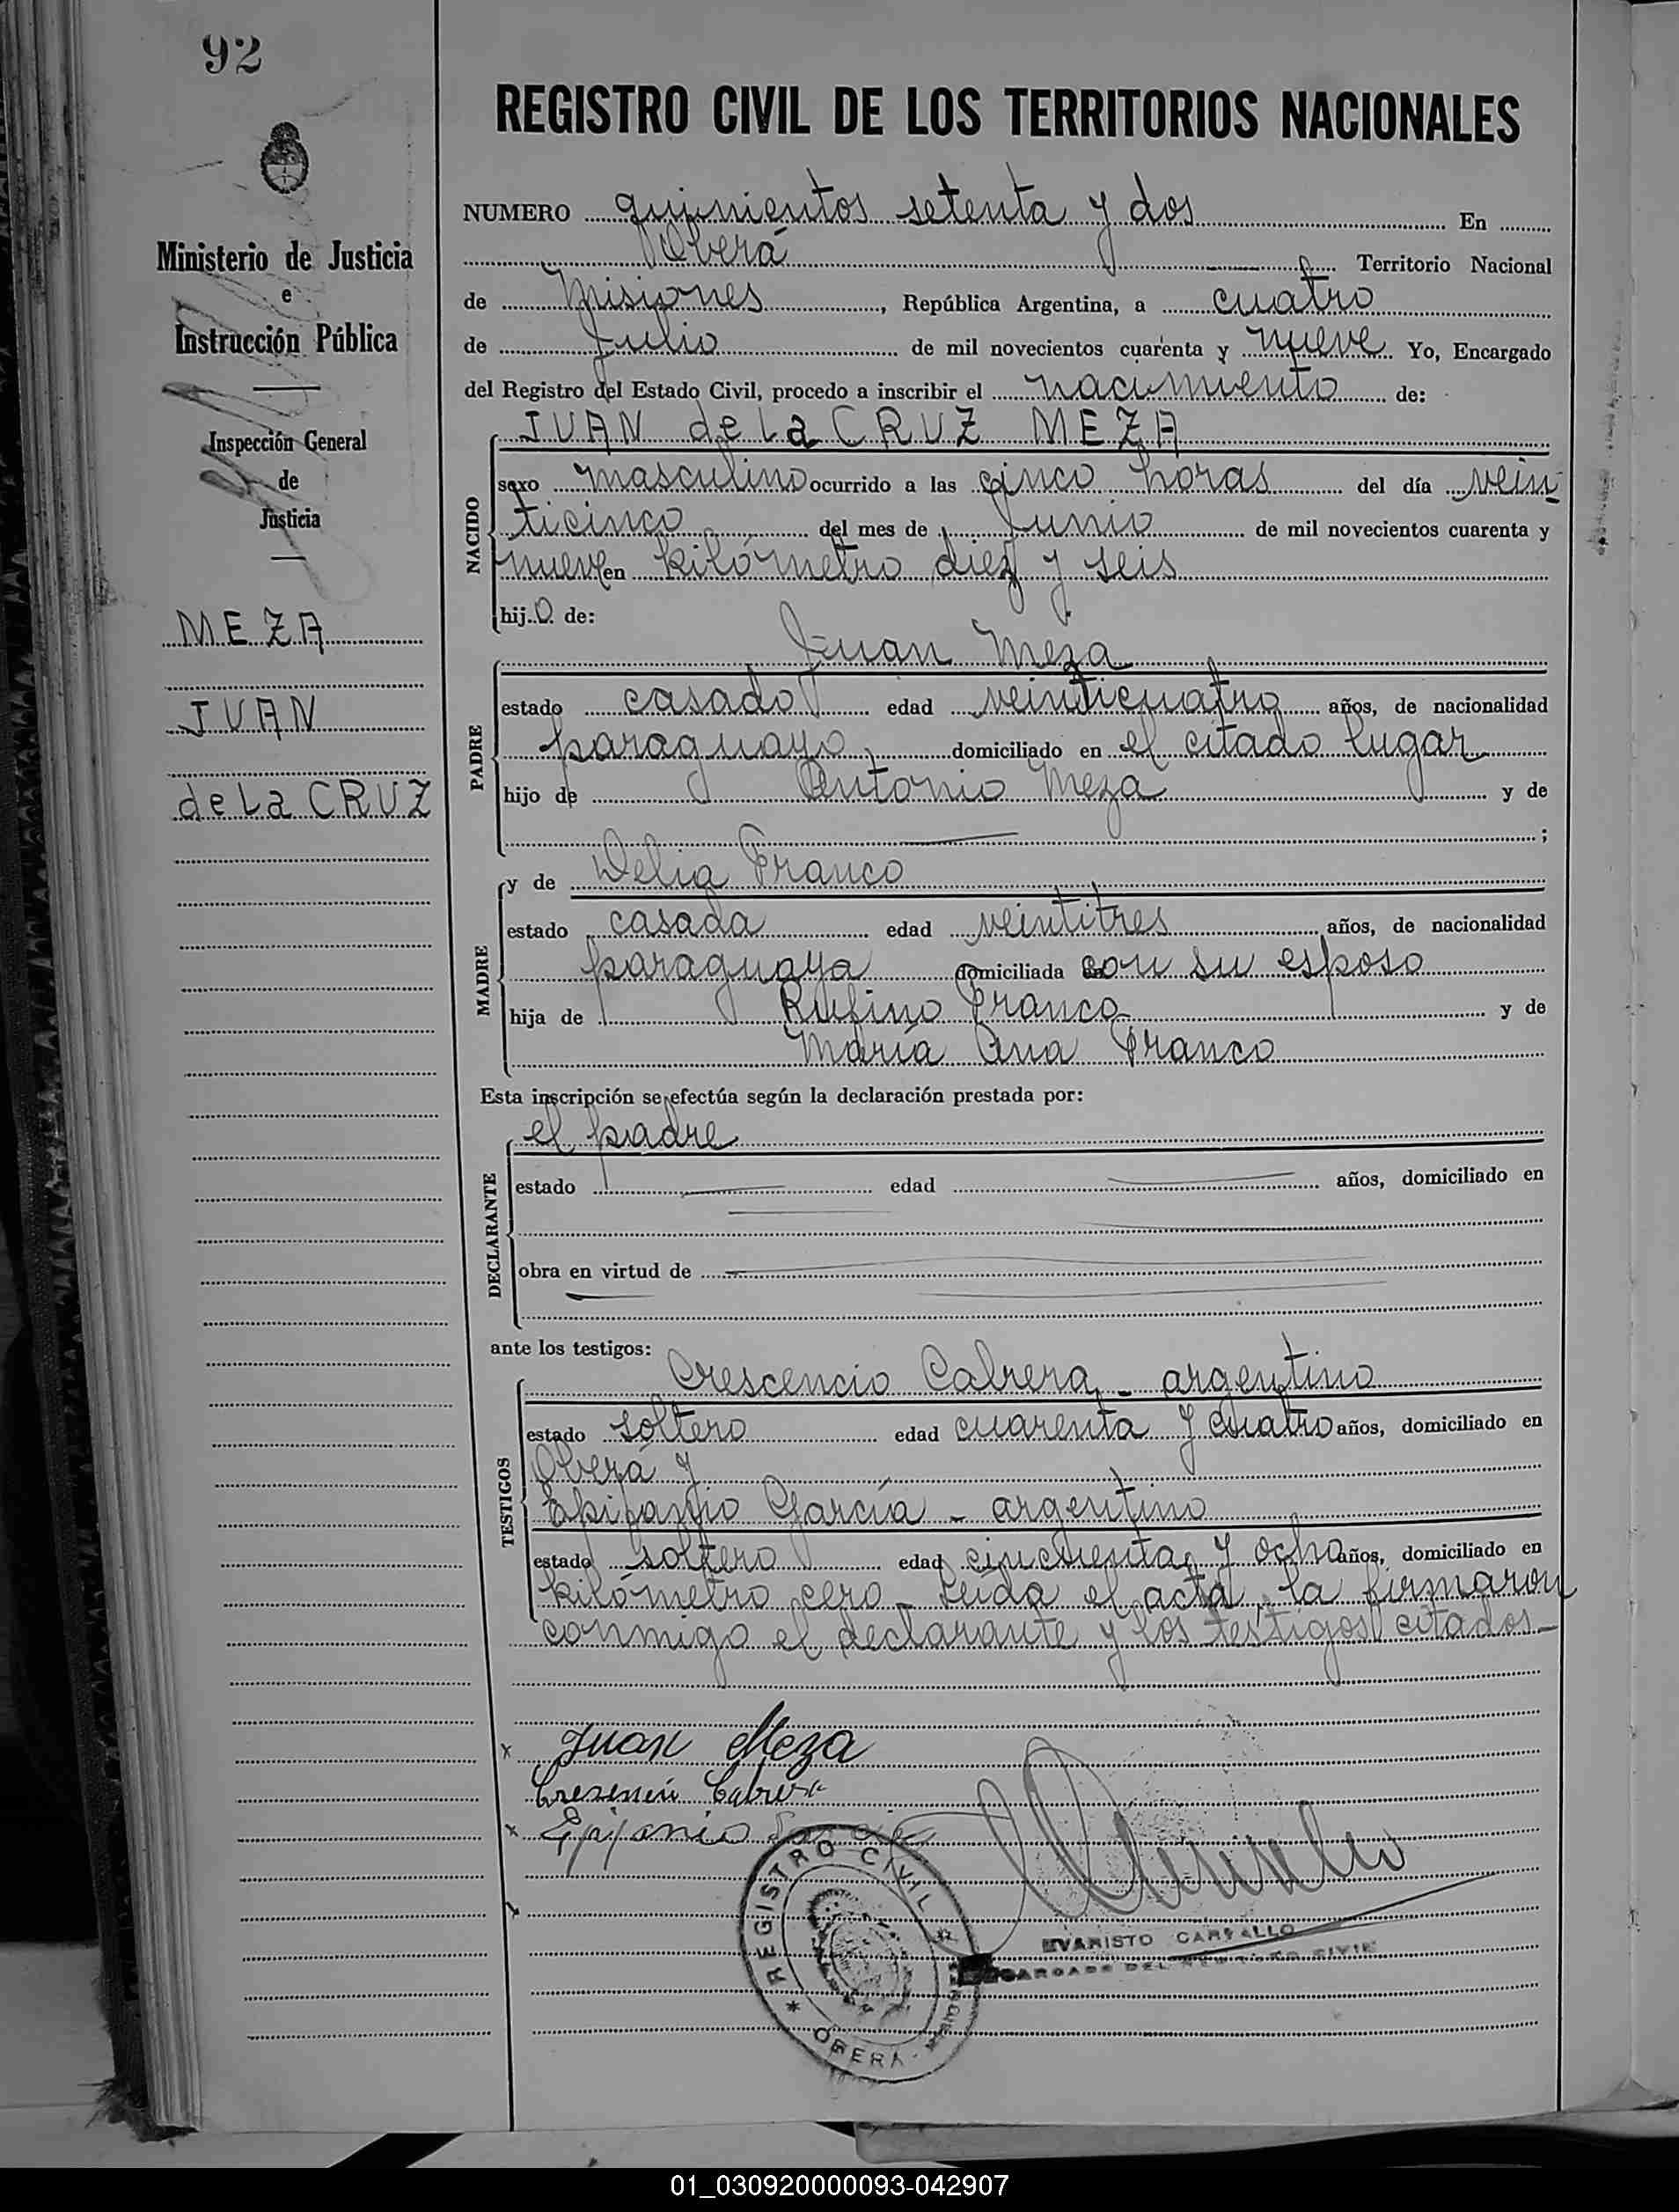 92
REGISTRO CIVIL DE LOS TERRITORIOS NACIONALES
Ministerio de Justicia
e
Instrucción Pública
Inspección General
de
Justicia
MEZA
JUAN
de la CRUZ
NUMERO quinientos setenta y dos En
Oberá Territorio Nacional
de Misiones, República Argentina, a cuatro
de Julio de mil novecientos cuarenta y nueve Yo, Encargado
del Registro del Estado Civil, procedo a inscribir el nacimiento de:
JUAN de la CRUZ MEZA
NACIDO
sexo masculino ocurrido a las cinco horas del día vein
ticinco del mes de Junio de mil novecientos cuarenta y
nueve en kilómetro diez y seis
hijo de:
Juan Meza
PADRE
estado casado edad veinticuatro años, de nacionalidad
paraguayo domiciliado en el citado lugar
hijo de Antonio Meza y de
;
y de Delia Franco
MADRE
estado casada edad veintitres años, de nacionalidad
paraguaya domiciliada con su esposo
hija de Rufino Franco y de
María Ana Franco
Esta inscripción se efectúa según la declaración prestada por:
el padre
DECLARANTE
estado edad años, domiciliado en
obra en virtud de
ante los testigos:
Crescencio Cabrera - argentino
TESTIGOS
estado soltero edad cuarenta y cuatro años, domiciliado en
Oberá y
Epifanio García - argentino
estado soltero edad cincuenta y ocho años, domiciliado en
kilómetro cero - Leída el acta, la firmaron
conmigo el declarante y los testigos citados-
x Juan Meza
Cresencio Cabrera
x Epifanio
REGISTRO CIVIL
OBERA
EVARISTO CARVALLO
ENCARGADO DEL REGISTRO CIVIL
01_030920000093-042907